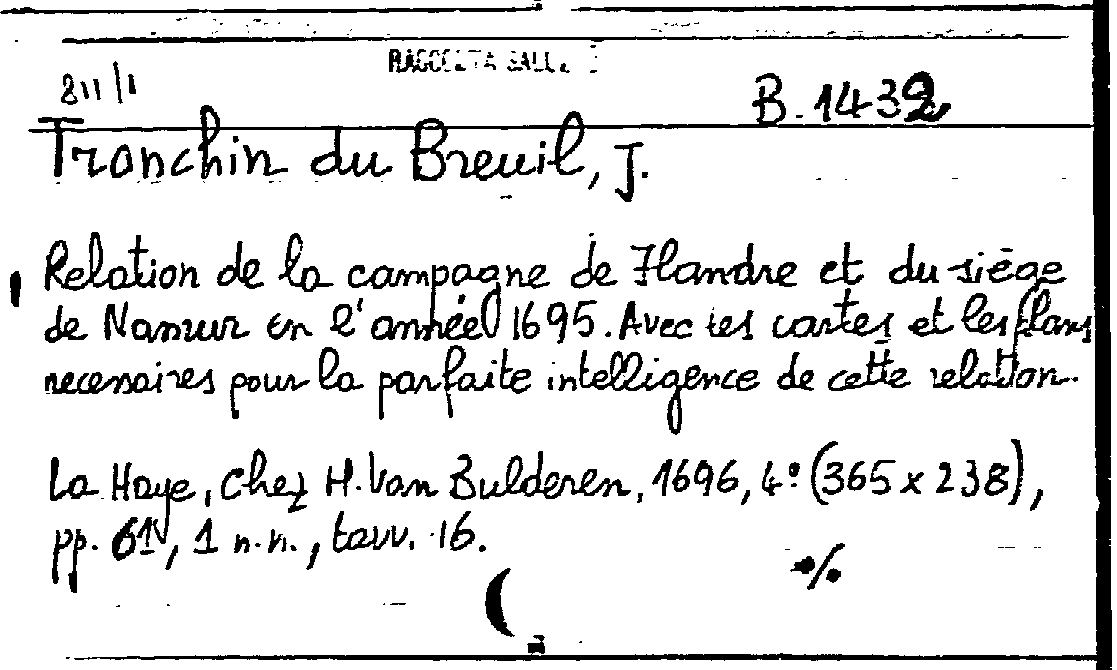 RACCOLTA
811/1
B.1432
Tronchin du Breuil, J.
Relation de la campagne de Flandre et du siège
de Namur en l'année 1695. Avec les cartes et les plans
necessaires pour la parfaite intelligence de cette relation.
La Haye, chez H. Van Bulderen, 1696, 4º (365 x 238),
pp. 61, 1 n.n., tavv. 16.
·/.